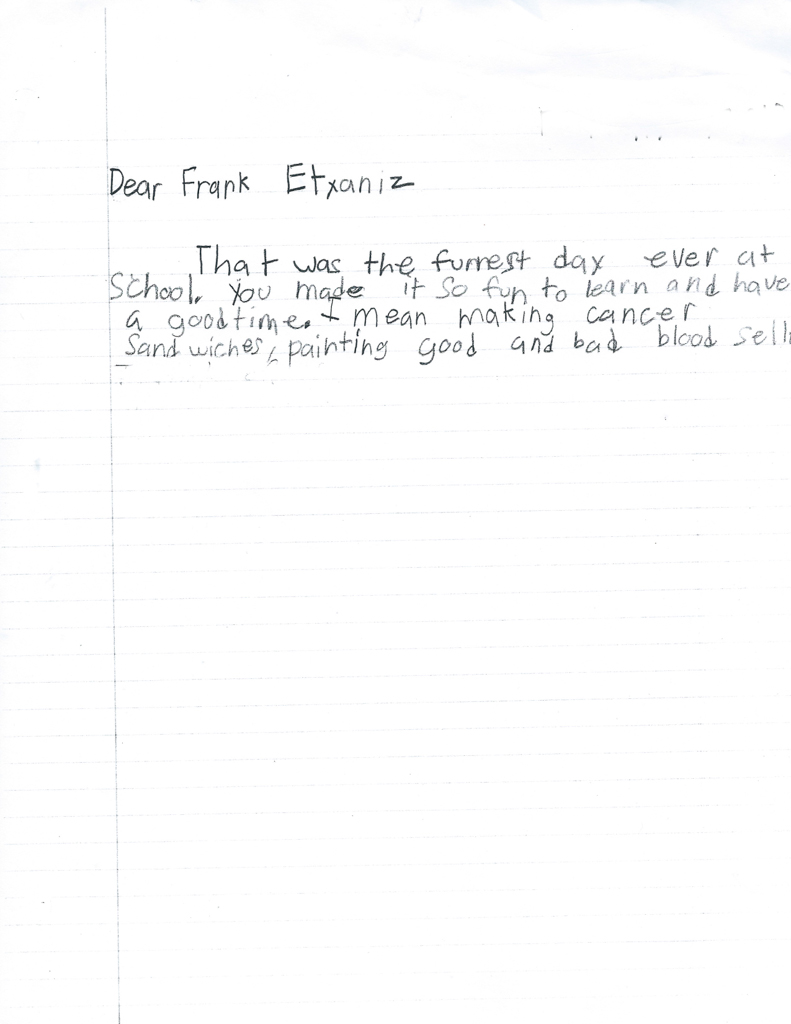 Dear Frank Etxaniz
That was the funnest day ever at
School. You made it so fun to learn and have
a good time. I mean making cancer
Sandwiches, painting good and bad blood sell